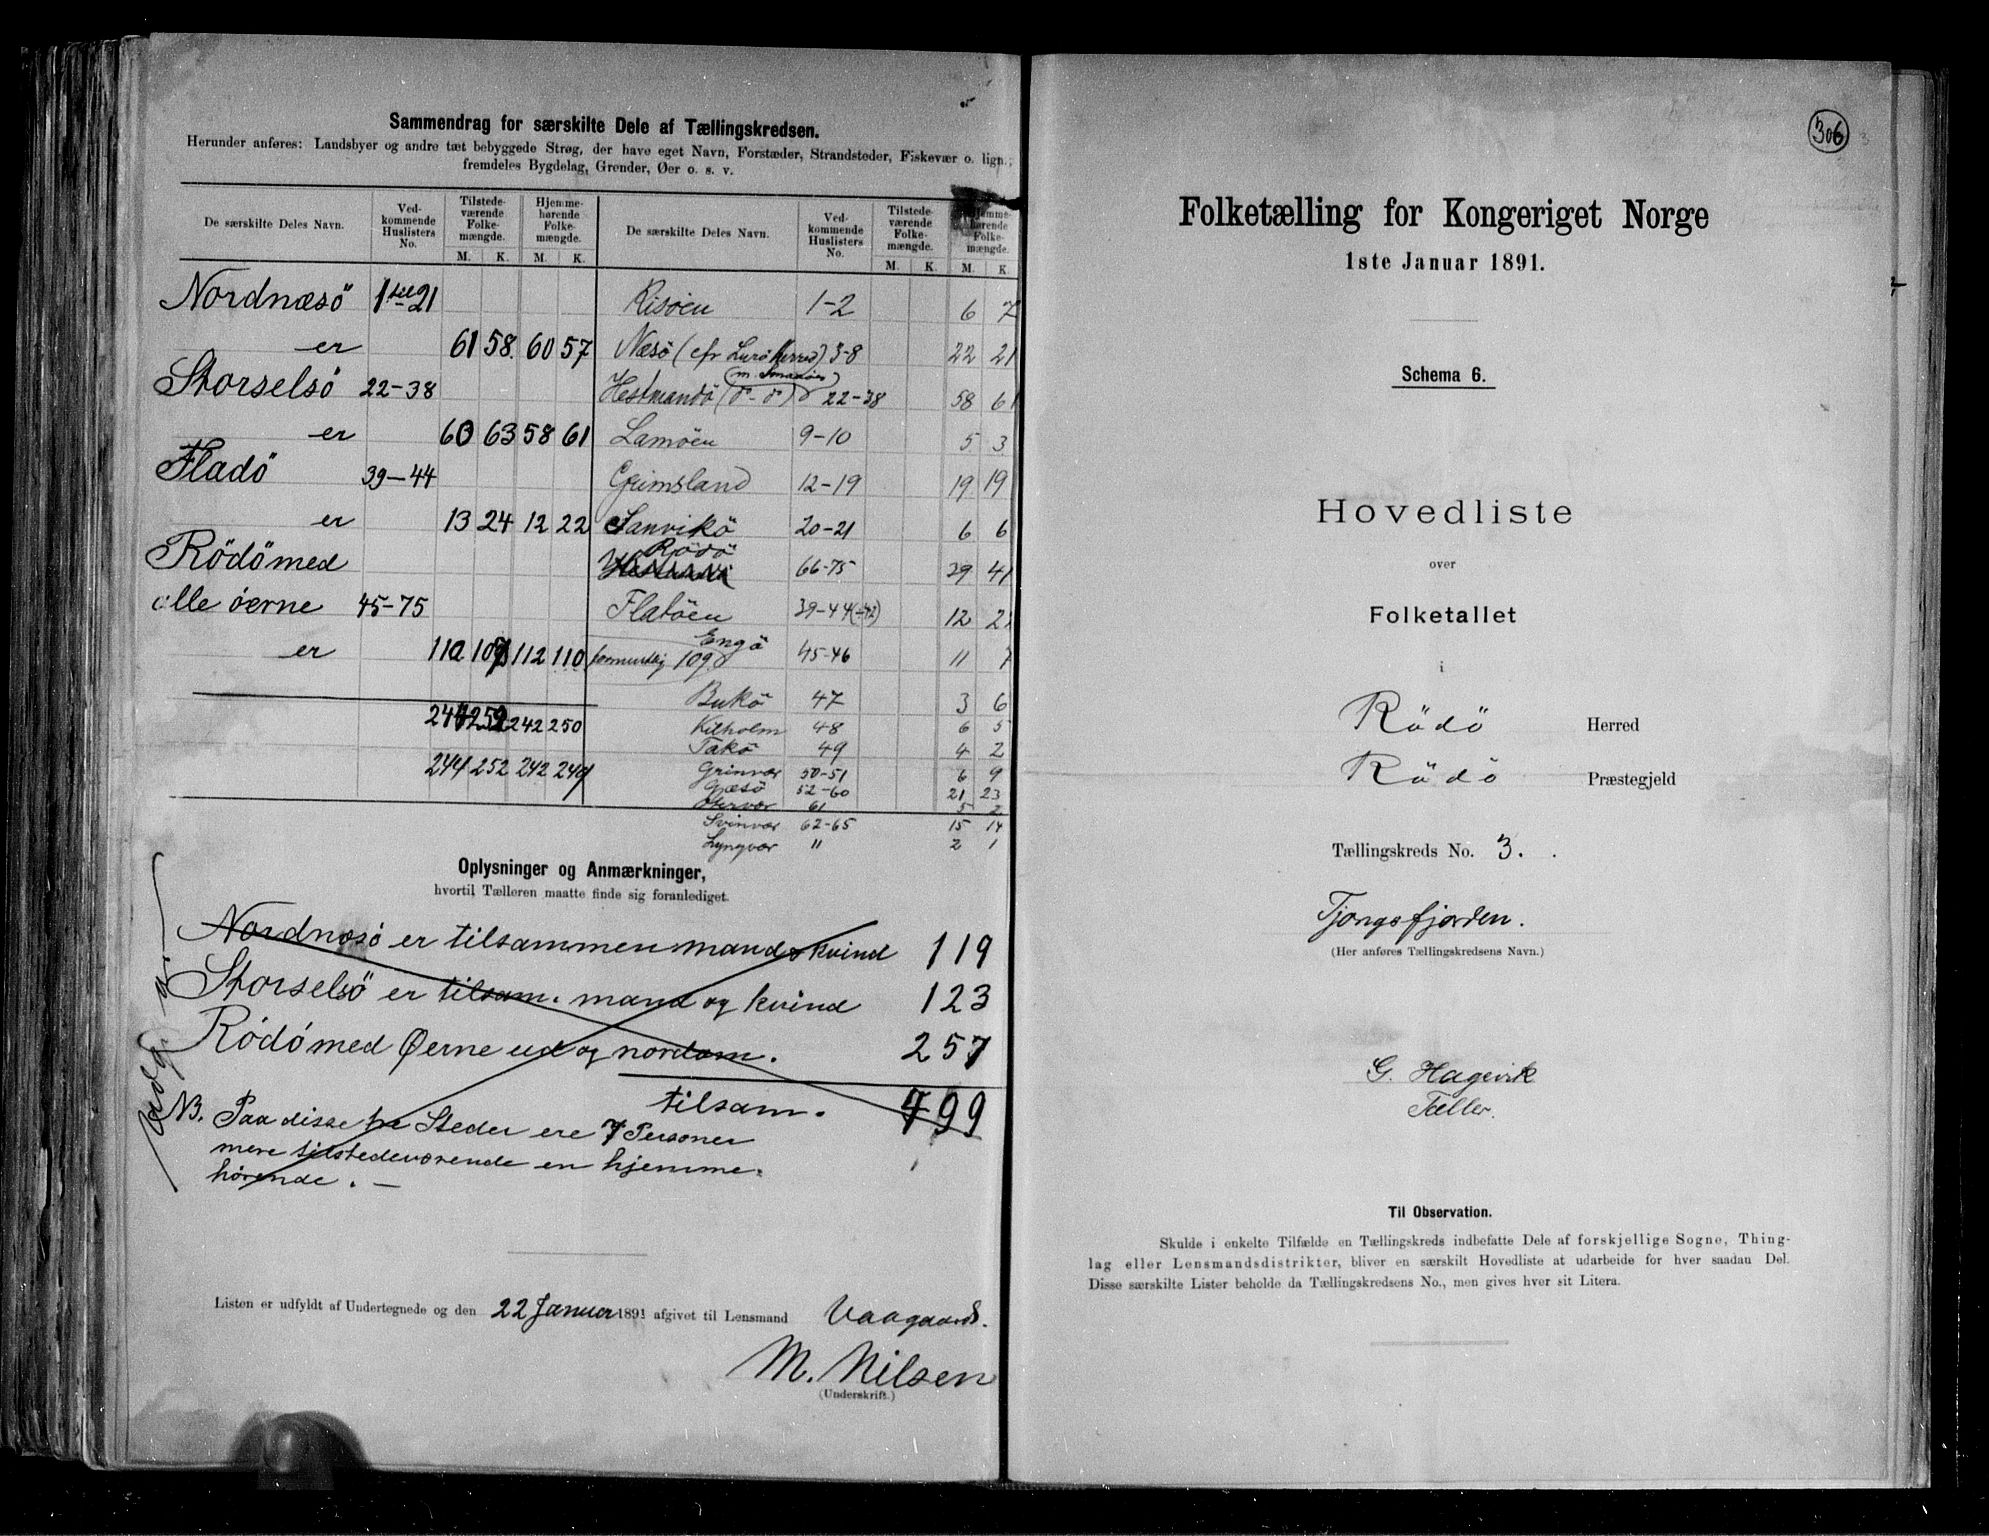 Sammendrag for særskilte Dele af Tællingskredsen.
Herunder anføres: Landsbyer og andre tæt bebyggede Strøg, der have eget Navn, Forstæder, Strandsteder, Fiskevær o. lign.;
fremdeles Bygdelag, Grender, Øer o. s. v.
De særskilte Deles Navn. Ved-kommende Huslisters No. Tilstede-værende Folke-mængde. Hjemme-hørende Folke-mængde. De særskilte Deles Navn. Ved-kommende Huslisters No. Tilstede-værende Folke-mængde. Hjemme-hørende Folke-mængde.
M. K. M. K. M. K. M. K.
Nordnæsö 1 til 21 Risöen 1-2 6 7
er 61 58. 60 57 Næsö (cfr Lurö Herred) 3-8 22 21
Storselsö 22-38 Hestmandö (d°-d°) 22-38 58 61
(m. Smaaöer)
er 60 63 58 61 Lamöen 9-10 5 3
Fladö 39-44 Grimsland 12-19 19 19
er 13 24 12 22 Sanvikö 20-21 6 6
Rödö med Rödö 66-75 39 41
alle öerne 45-75 Flatöen 39-44 12 22
er 110 112 110 109 Engö 45-46 11 7
Bukö 47 3 6
244 252 242 250 Kilholm 48 6 5
Takö 49 4 2
244 252 242 249 Grinvær 50-51 6 9
Gæsö 52-60 21 23
61 5 2
Svinvær 62-65 15 14
Lyngvær " 2 1
Oplysninger og Anmærkninger,
hvortil Tælleren maatte finde sig foranlediget.
Nordnæsö er tilsammen mand & kvind 119
Storselsö er tilsam. mand og kvind 123
Rödö med Øerne ud og nordom. 257
tilsam. 499
NB. Paa disse tre Steder ere 7 Personer
mere tilstedeværende en hjemme-
hørende. —
Listen er udfyldt af Undertegnede og den 22 Januar 1891 afgivet til Lensmand Vaagaard.
M. Nilsen
(Underskrift.)
306
Folketælling for Kongeriget Norge
1ste Januar 1891.
Schema 6.
Hovedliste
over
Folketallet
i
Rödö Herred
Rödö Præstegjeld
Tællingskreds No. 3.
Tjongsfjorden.
(Her anføres Tællingskredsens Navn.)
G. Hagevik
Tæller.
Til Observation.
Skulde i enkelte Tilfælde en Tællingskreds indbefatte Dele af forskjellige Sogne, Thing-
lag eller Lensmandsdistrikter, bliver en særskilt Hovedliste at udarbeide for hver saadan Del.
Disse særskilte Lister beholde da Tællingskredsens No., men gives hver sit Litera.